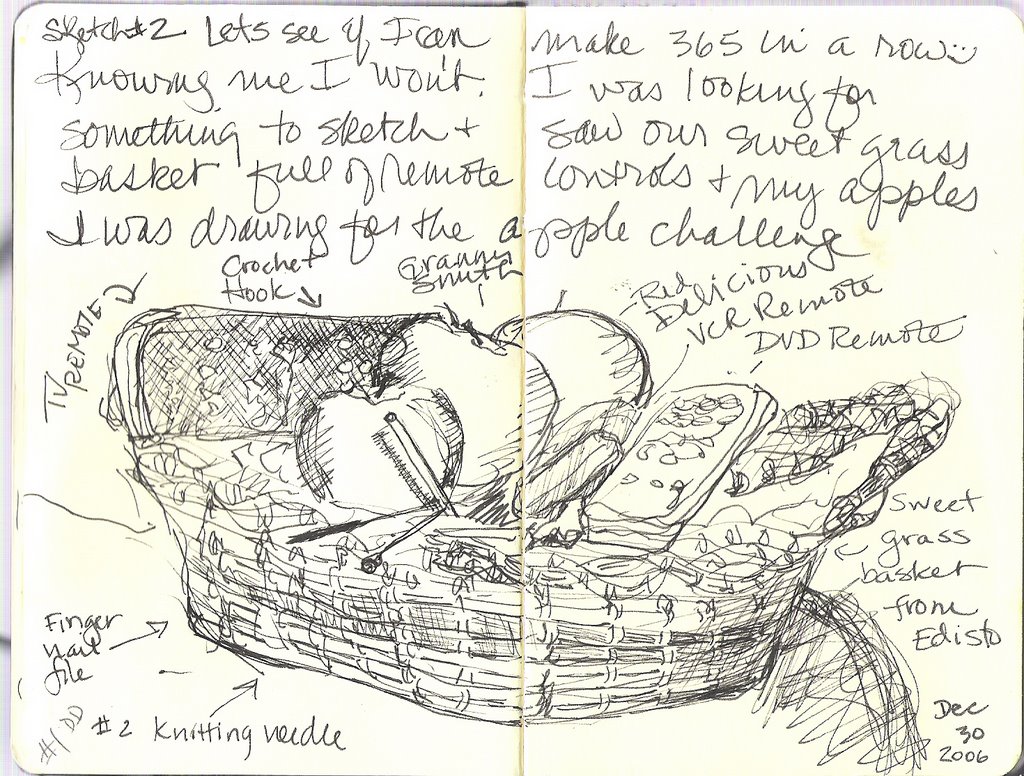 Sketch #2 Lets see if I can make 365 in a row :)
Knowing me I won't. I was looking for
something to sketch + saw our sweet grass
basket full of remote controls + my apples
I was drawing for the apple challenge
Crochet
Hook
Granny
Smith
Red
Delicious
VCR Remote
DVD Remote
TV REMOTE
Sweet
grass
basket
from
Edisto
Finger
nail
file
#2 Knitting needle
#1 DD
Dec
30
2006